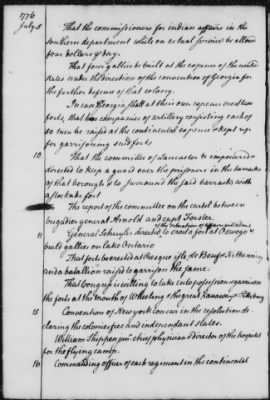 1776
July 5 That the commissioners for indian affairs in the
southern department while on actual service be allowed
four dollars p day.
That four gallies be built at the expence of the united
states under the direction of the convention of Georgia for
the further defence of that colony.
In case Georgia shall at their own expence erect two
forts, that two companies of artillery consisting each of
50 men be raised at the continental expence & kept up
for garrisoning said forts
10 That the committee of Lancaster be impowered
directed to keep a guard over the prisoners in the barracks
of that borough & to surround the said barracks with
a stockade fort
The report of the committee on the cartel between
brigadier general Arnold and capt Forster.
& the destruction of
11 General Schuyler directed to erect a fort at Oswego &
build gallies on lake Ontario
That forts be erected at Presque isle, le Beuf & Kittanning
and a batallion raised to garrison the same.
That Congress is willing to take into possession & garrison
the forts at the mouth of Wheeling & the great Kanhaway & Pittsburg
15 Convention of New york concur in the resolution de-
claring the colonies free and independant states.
William Shippen jun chief physician & director of the hospital
for the flying camp.
16 Commanding officer of each regiment in the continental